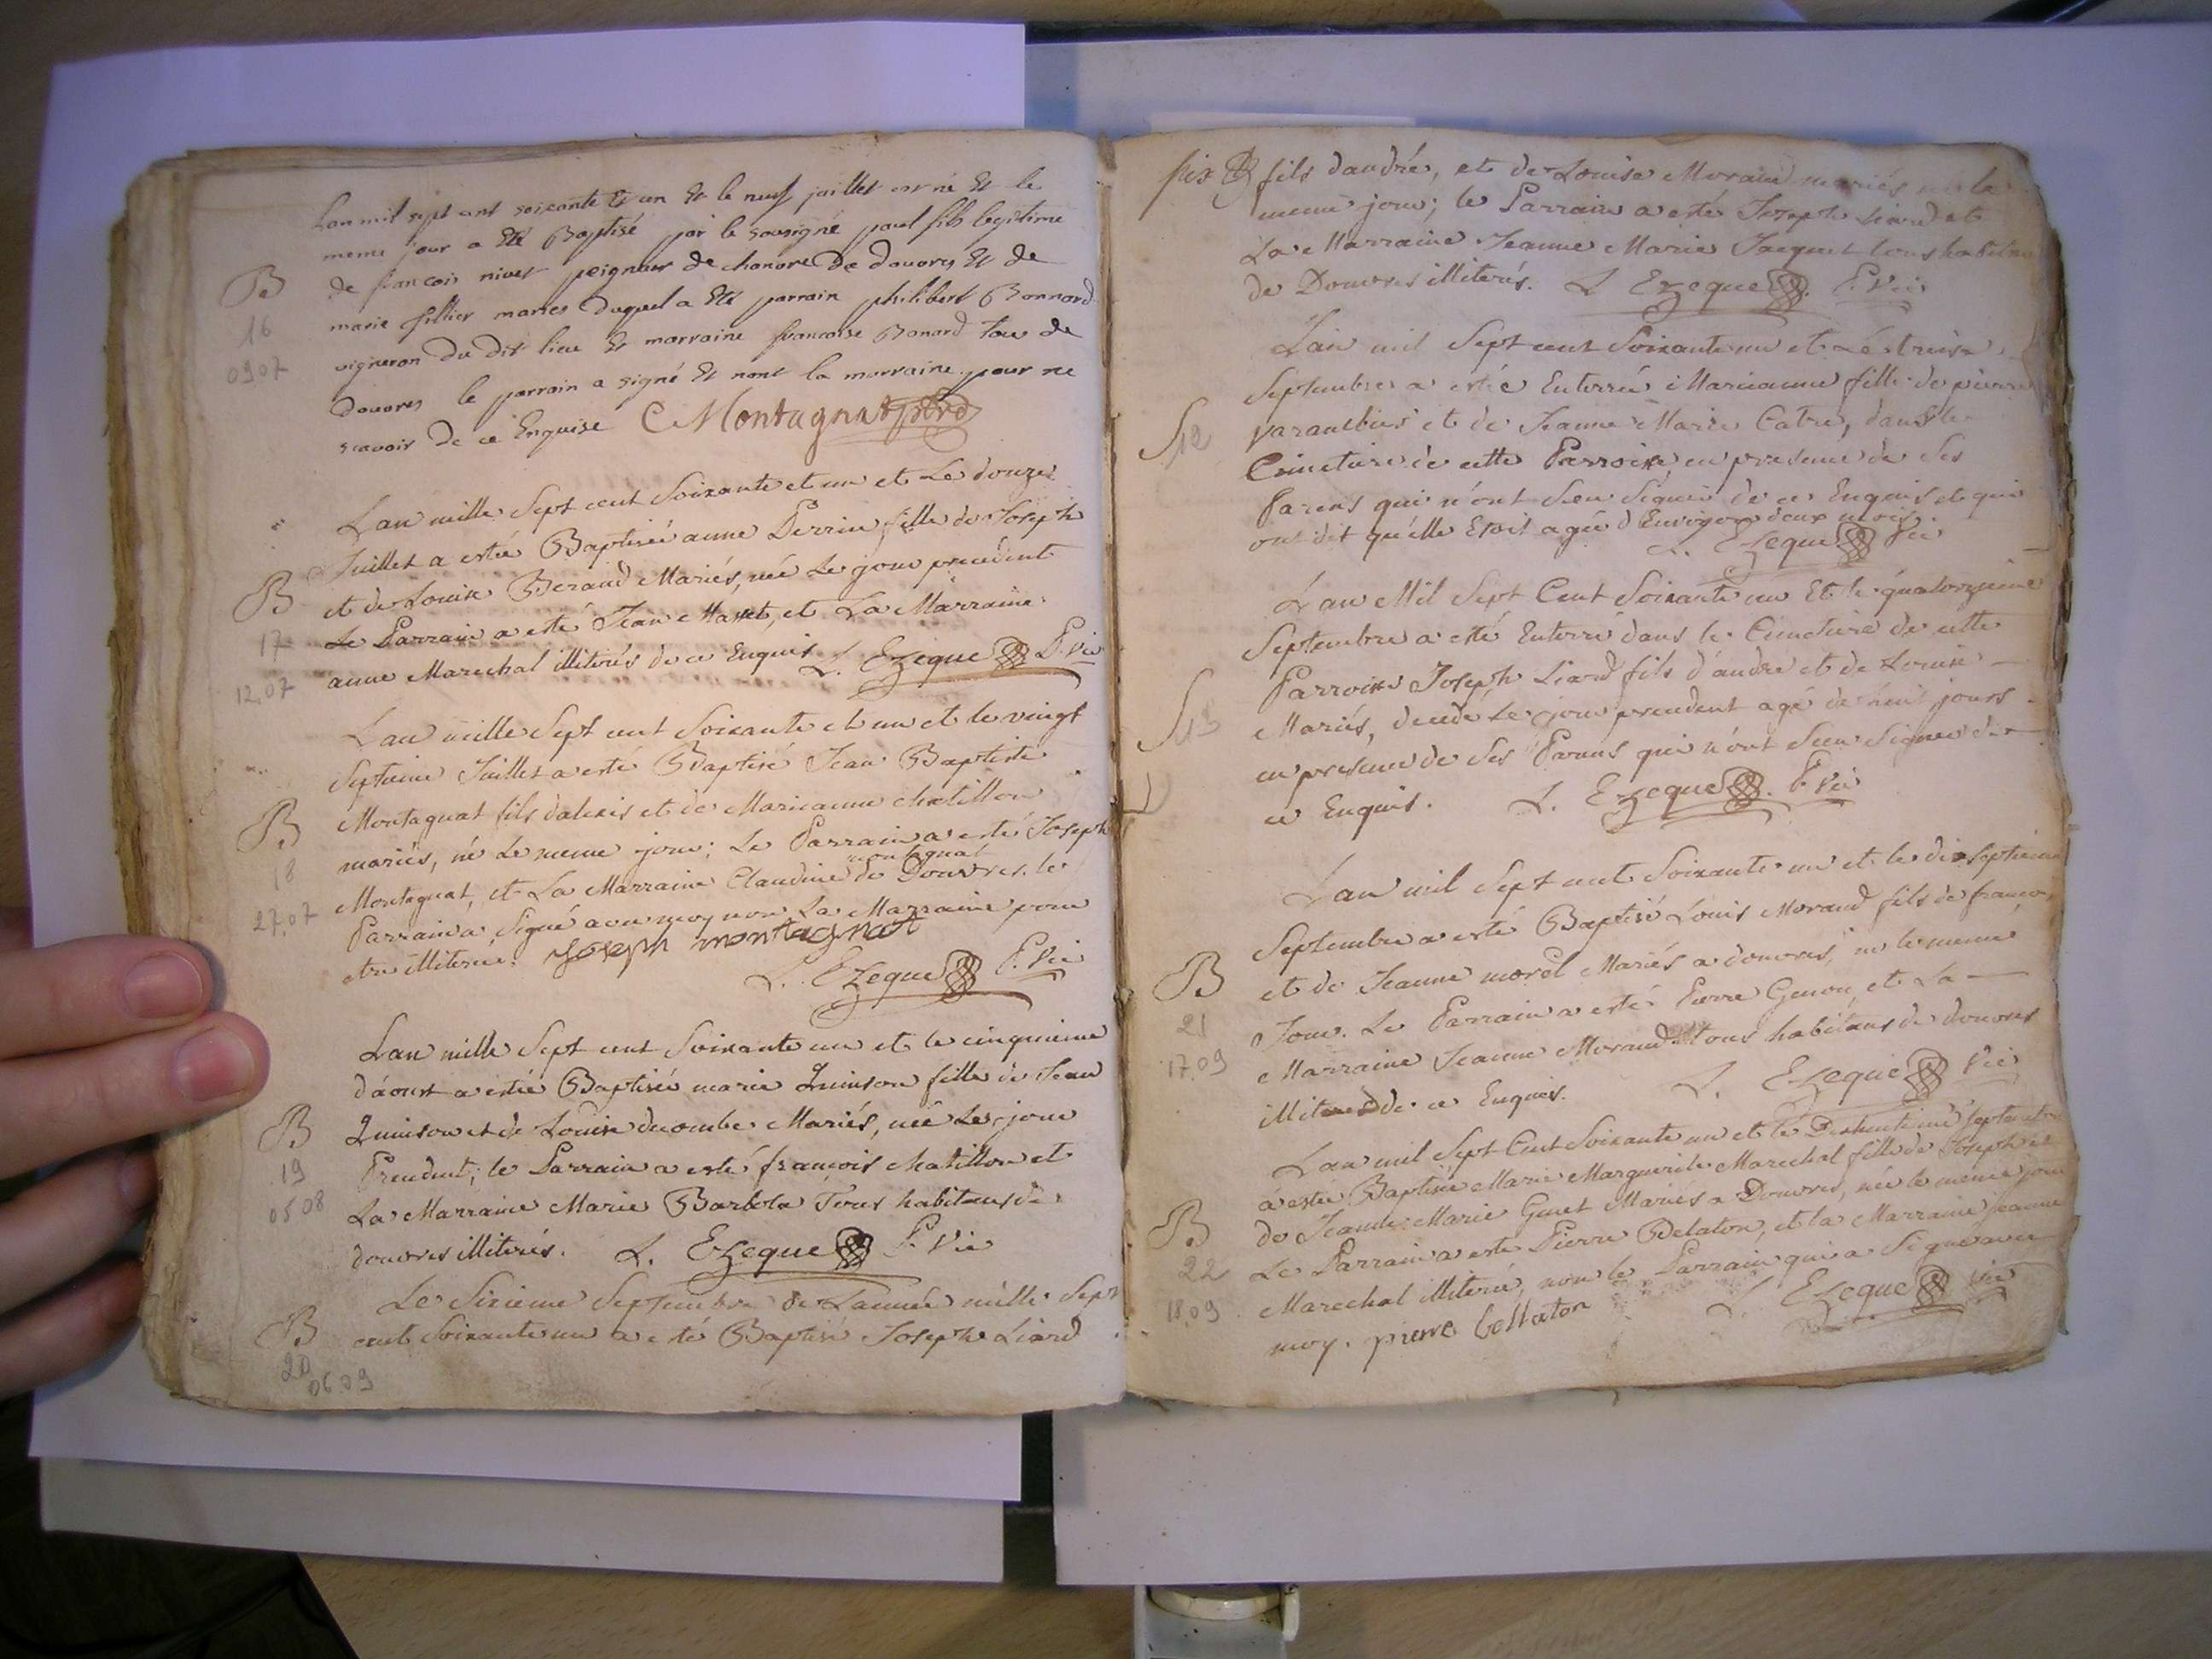 Lan mil sept cent soixante et un et le neuf juillet est né et le
meme jour a eté Baptisé par le sousigné paul fils legitime
de francois nivet peigneur de chanvre de douvres et de
marie fillier maries duquel a eté parrain philibert Bonnard
vigneron du dit lieu et marraine francoise Bonard tous de
douvres le parrain a signé et nont la marraine pour ne
scavoir de ce Enquise C Montagnat ptre
B
16
09 07
Lan mille Sept cent Soixante et un et Le douze
Juillet a estée Baptisée anne Perrin fille de Joseph
et de Louise Beraud Mariés, née Le jour precedent
Le Parrain a esté Jean Masset, et La Marraine
anne Marechal illiterés de ce Enquis L. Ezeque P. Vic
B
17
12.07
Lan mille Sept cent Soixante et un et le vingt
Septieme Juillet a esté Baptisé Jean Baptiste
Montagnat fils dalexis et de Marieanne chatillon
mariés, né Le meme jour; Le Parrain a esté Joseph
montagnat
Montagnat, et La Marraine Claudine de Douvres. le
Parrain a Signé avec moy non La Marraine pour
etre illiteree. Joseph montagnat
L. Ezeque P. Vic
B
18
27.07
Lan mille Sept cent Soixante un et le cinquieme
d'aoust a estée Baptisée marie Quinson fille de Jean
Quinson et de Louise ducombe Mariés, née Le jour
Precedent; le Parrain a esté françois chatillon et
La Marraine Marie Barbola Tous habitans de
douvres illiterés. L. Ezeque P. Vic
B
19
05 08
Le Sixieme Septembre de Lannée mille Sept
cent Soixante un a esté Baptisé Joseph Liard
B
20
06.09
fils dandré, et de Louise Moraud mariés né le
meme jour; le Parrain a esté Joseph Liard et
La Marraine Jeanne Marie Jacquet tous habitans
de Douvres illiterés. L Ezeque P. Vic
Lan mil Sept cent Soixante un et Le treize
Septembre a estée Enterrée Marieanne fille de pierre
Varambier et de Jeanne Marie Catre, dans le
Cimetiere de cette Parroisse, en presence de Ses
Parens qui n'ont Sceu Signer de ce Enquis et qui
ont dit qu'elle Etoit agée d'Environ deux mois.
L. Ezeque Vic
S
12
Lan Mil Sept Cent Soixante un Et le quatorzieme
Septembre a esté Enterré dans le Cimetiere de cette
Parroisse Joseph Liard fils d'andré et de Louise
Mariés, decedé Le jour precedent agé de huit jours
en presence de Ses Parens qui n'ont Sceu Signer de
ce Enquis. L. Ezeque P. Vic
S
13
Lan mil Sept cent Soixante un et le dixSeptieme
Septembre a esté Baptisé Louis Moraud fils de françois
et de Jeanne morel Mariés a douvres, né le meme
Jour. Le Parrain a esté Pierre Genou, et La
Marraine Jeanne Moraud tous habitans de douvres
illiterés de ce Enquis. L. Ezeque Vic
B
21
17.09
Lan mil Sept Cent Soixante un et le Dixhuitieme Septembre
a estée Baptisée Marie Marguerite Marechal fille de Joseph et
de Jeanne Marie Genet Mariés a Douvres, née le meme jour
Le Parrain a esté Pierre Belaton, et la Marraine Jeanne
Marechal illiterée, non le Parrain qui a Signé avec
moy. pierre bellaton L. Ezeque Vic
B
22
18.09